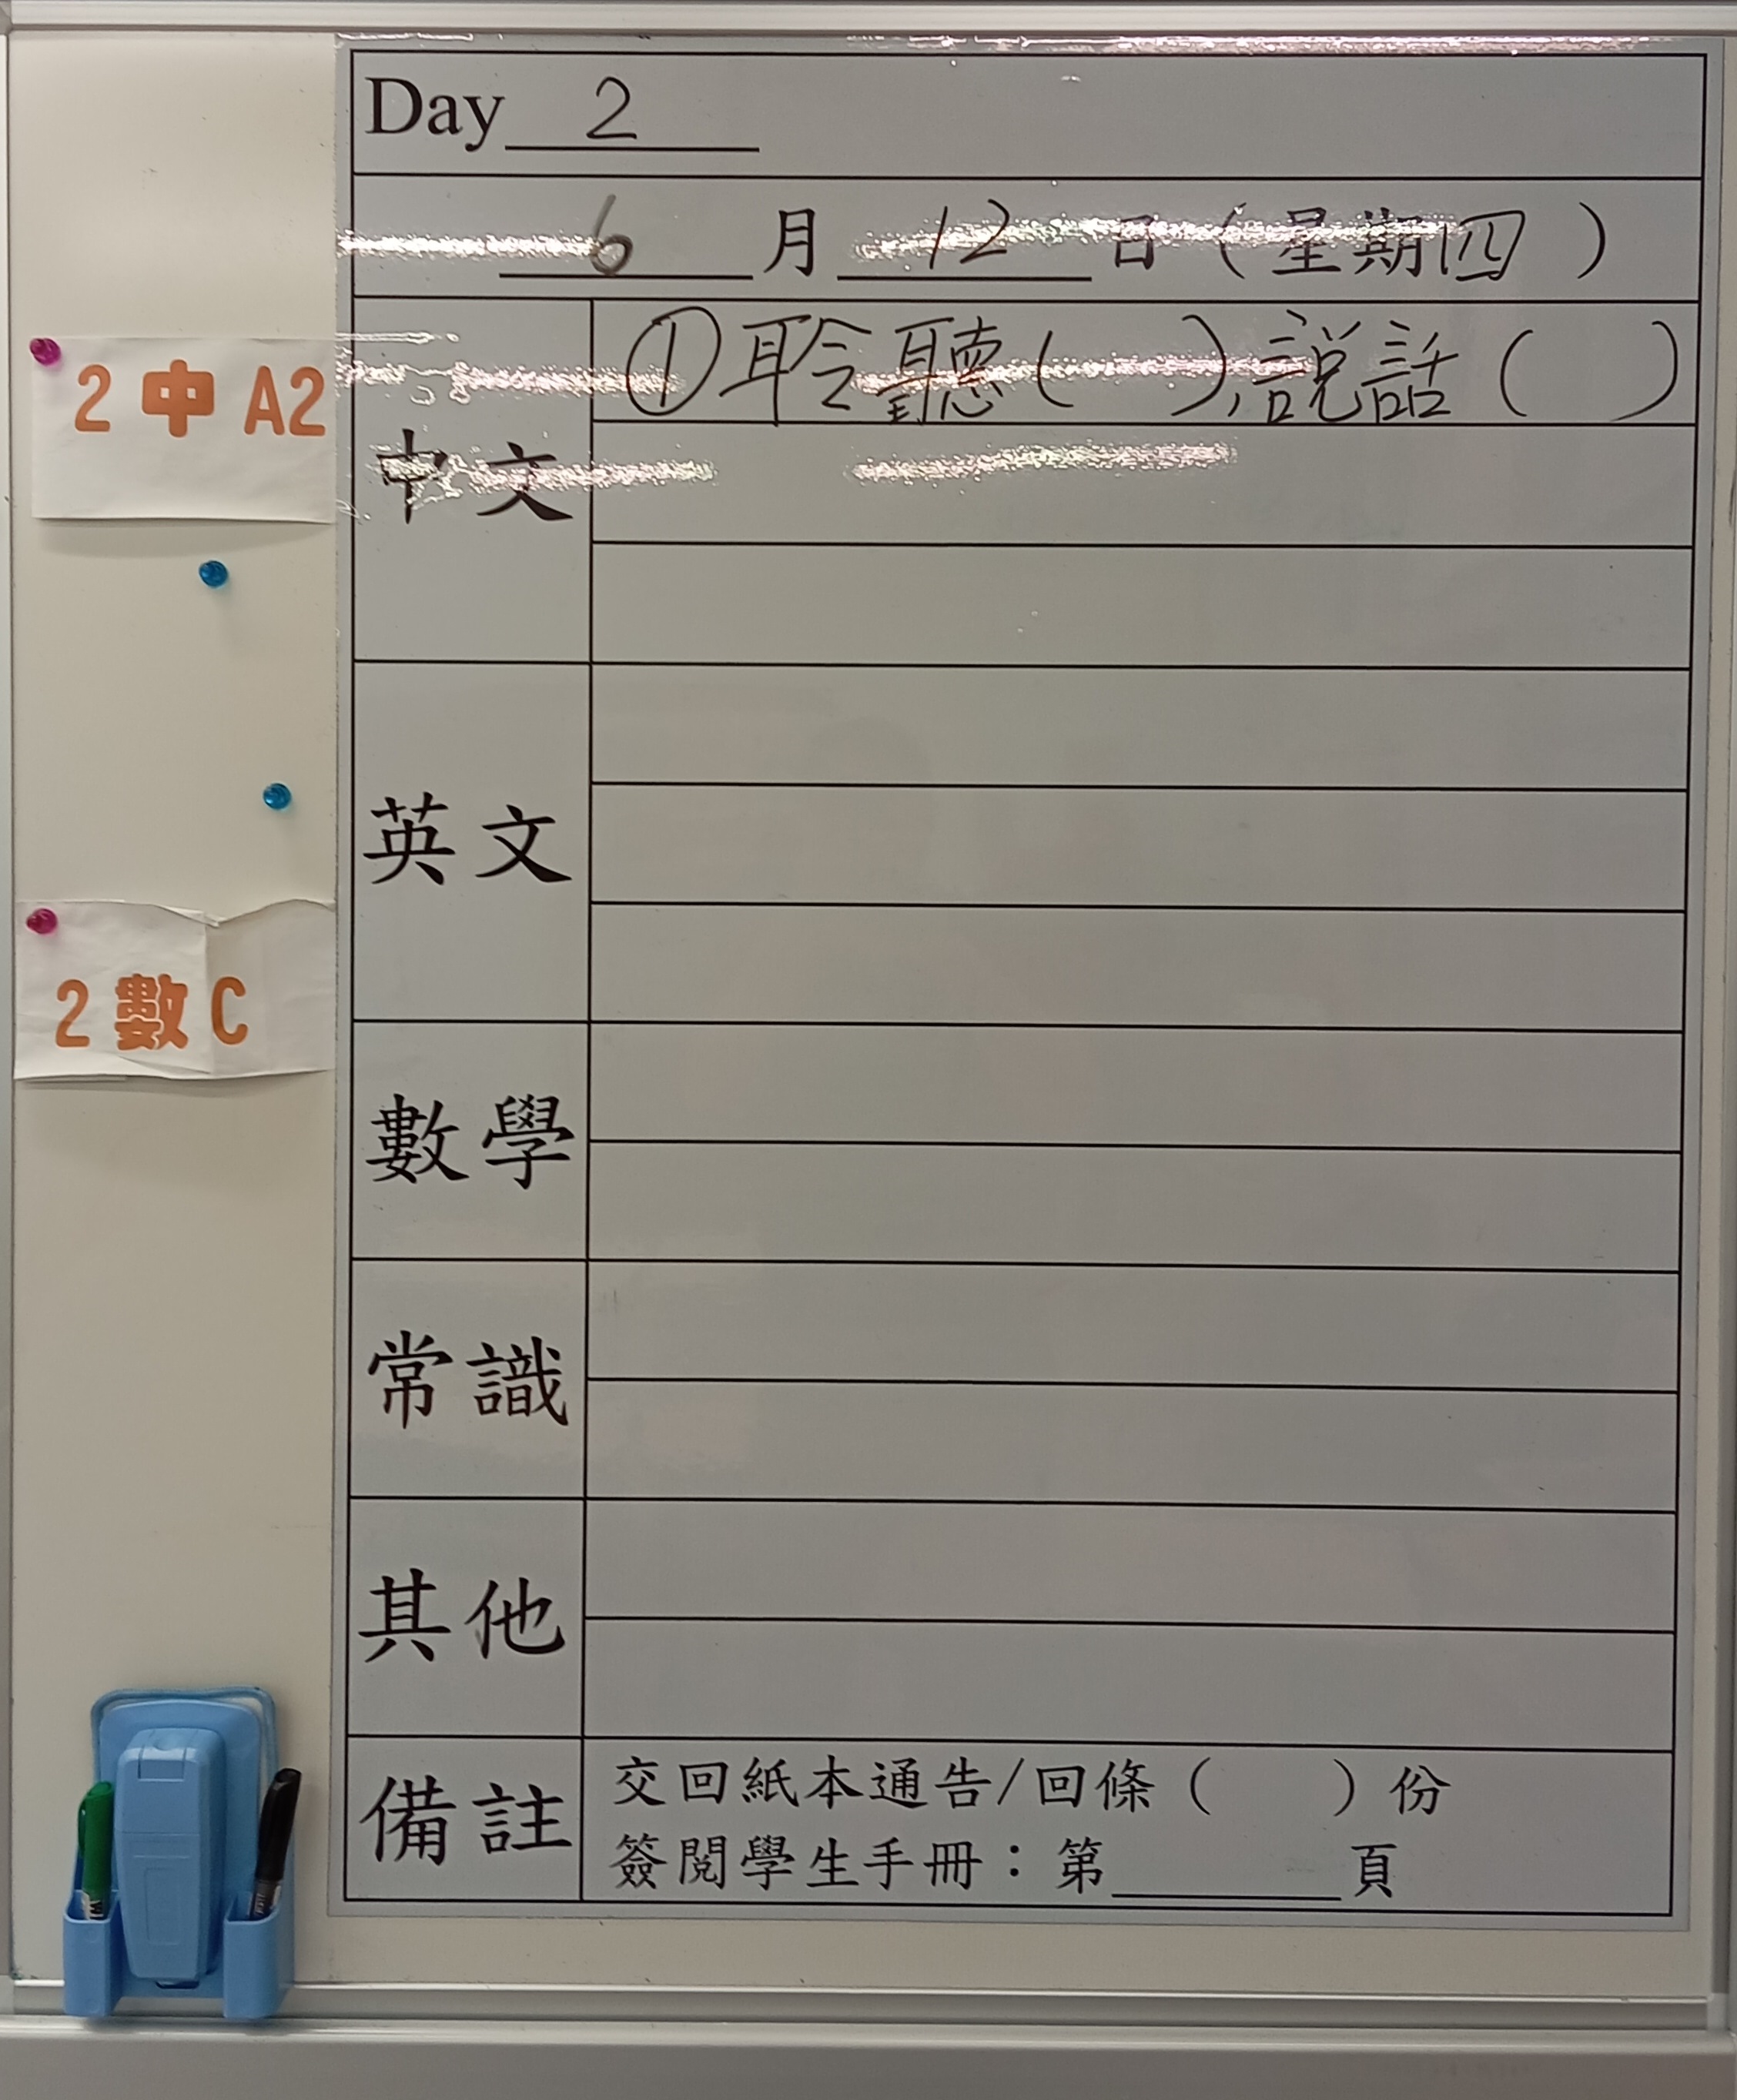 Day 2
6 月 12 日（星期四）
2 中 A2
中文
①聆聽( ),説話( )
英文
2 數 C
數學
常識
其他
備註
交回紙本通告/回條（ ）份
簽閱學生手冊：第______頁